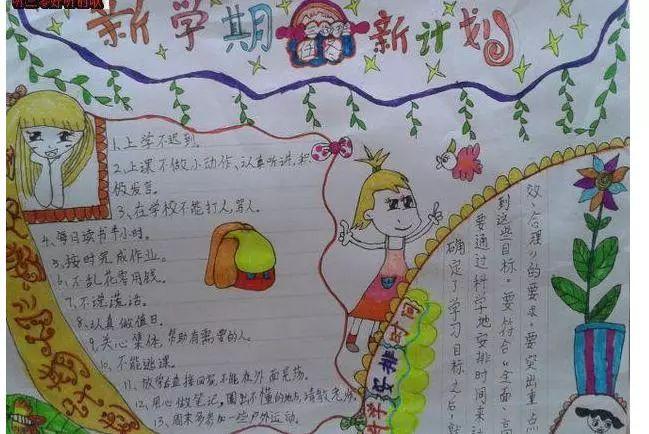 新学期 新计划
1、上学不迟到。
2、上课不做小动作、认真听讲、积
极发言。
3、在学校不能打人、骂人。
4、每日读书半小时。
5、按时完成作业。
6、不乱花零用钱。
7、不说谎话。
8、认真做值日。
9、关心集体,帮助有需要的人。
10、不能逃课。
11、放学后直接回家,不能在外面晃荡。
12、用心做笔记,圈出不懂的地点,请教老师
13、周末多参加一些户外运动。
科学安排时间
确定了学习目标之后,就
要通过科学地安排时间来达
到这些目标。要符合“全面、高
效、合理”的要求,要突出重点